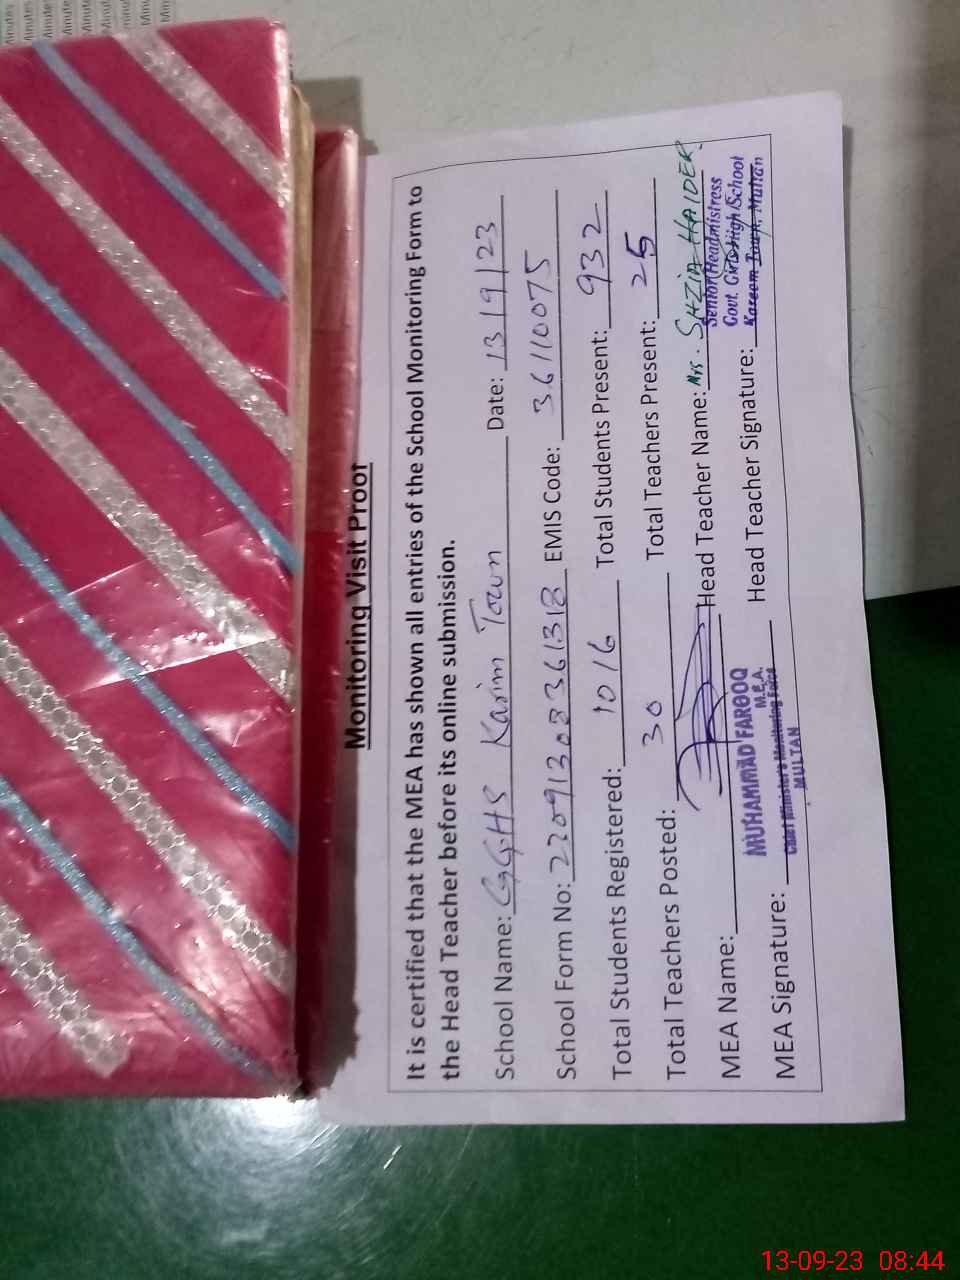 Monitoring Visit Proof
It is certified that the MEA has shown all entries of the School Monitoring Form to
the Head Teacher before its online submission.
School Name: GGHS Karim Town Date: 13/9/23
School Form No: EMIS Code: 36110075
Total Students Registered: 1016 Total Students Present: 932
Total Teachers Posted: 30 Total Teachers Present: 25
MEA Name: Head Teacher Name: Mrs. HAIDER
MUHAMMAD FAROOQ
M.E.A.
Chief Minister's Monitoring Force
MULTAN
Senior Headmistress
Govt. Girls High School
Kareem Town, Multan
MEA Signature: Head Teacher Signature:
13-09-23 08:44